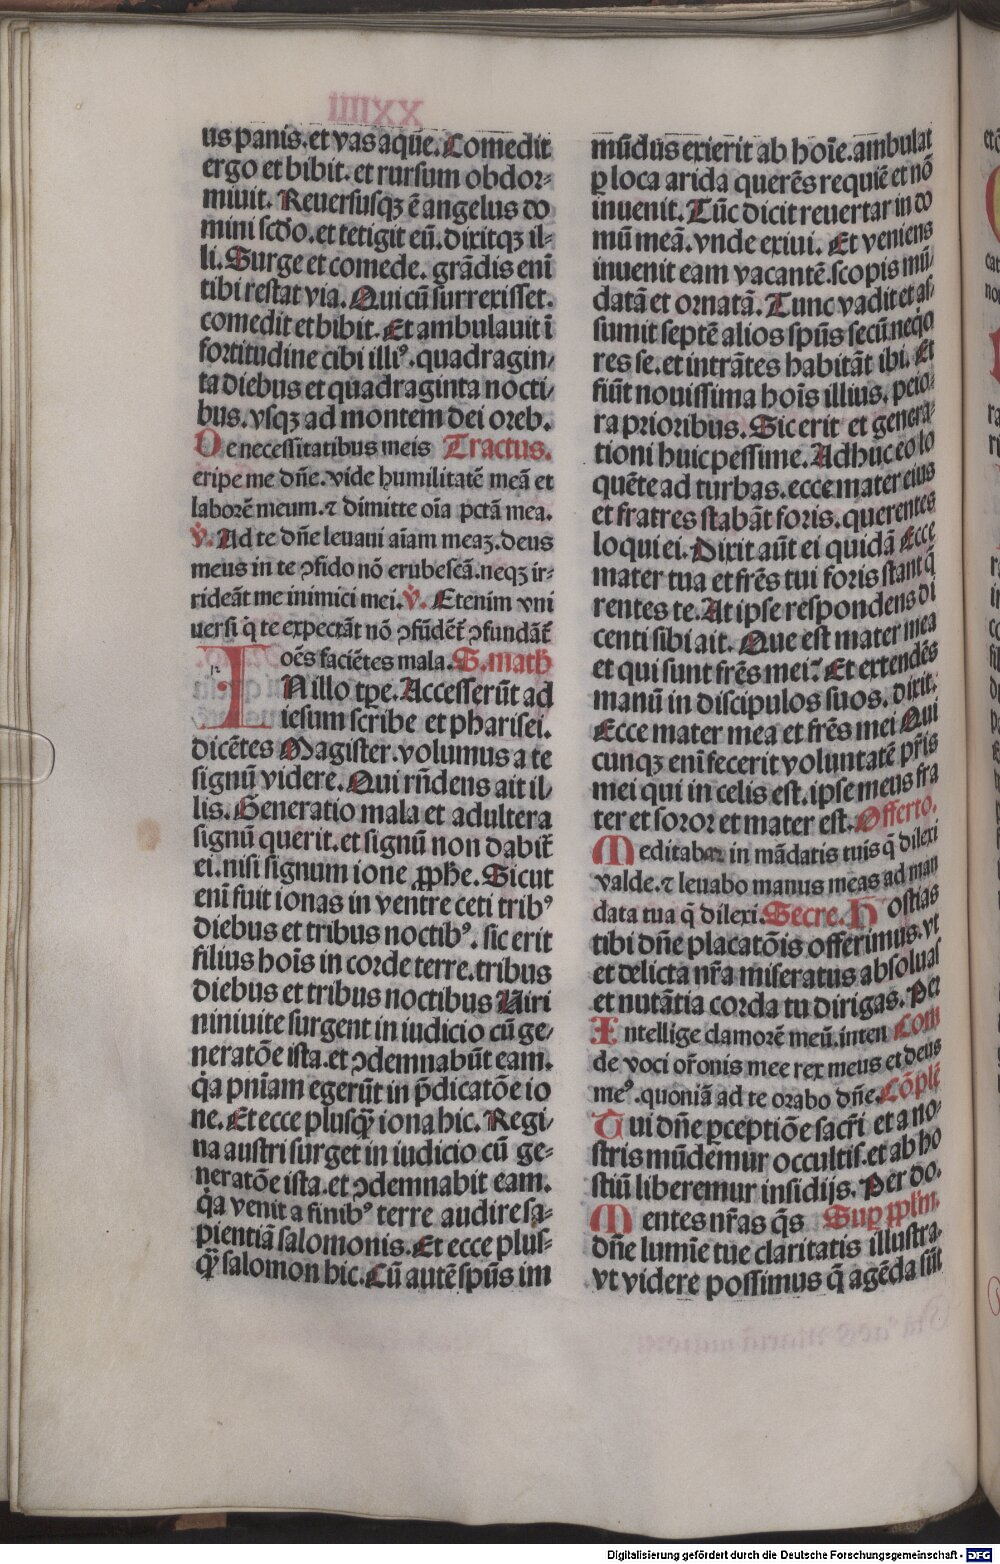 us panis. et vas aque. Comedit
ergo et bibit. et rursum obdor⸗
miuit. Reuersusqꝫ ē angelus do
mini scďo. et tetigit eū. dixitqꝫ il⸗
li. Surge et comede. grādis enī
tibi restat via. Qui cū surrexisset.
comedit et bibit. Et ambulauit ī
fortitudine cibi illiꝰ. quadragin/
ta diebus et quadraginta nocti/
bus. vsqꝫ ad montem dei oreb.
De necessitatibus meis Tractus.
eripe me dn̄e. vide humilitatē meā et
laborē meum. ⁊ dimitte oīa pctā mea.
℣. Ad te dn̄e leuaui aīam meaꝫ. deus
meus in te ꝯfido nō erubescā. neqꝫ ir⸗
rideāt me inimici mei. ℣. Etenim vni
uersi q̇ te expectāt nō ꝯfūdēt̄ ꝯfundāt̄
oēs faciētes mala. S. math
IN illo tp̄e. Accesserūt ad
iesum scribe et pharisei.
dicētes Magister. volumus a te
signū videre. Qui rn̄dens ait il/
lis. Generatio mala et adultera
signū querit. et signū non dabit̄
ei. nisi signum ione ꝓph̄e. Sicut
enī fuit ionas in ventre ceti tribꝰ
diebus et tribus noctibꝰ. sic erit
filius hoīs in corde terre. tribus
diebus et tribus noctibus Uiri
niniuite surgent in iudicio cū ge⸗
neratōe ista. et ꝯdemnabūt eam.
q̇a pn̄iam egerūt in p̄dicatōe io
ne. Et ecce plusq̄ꝫ iona hic. Regi/
na austri surget in iudicio cū ge⸗
neratōe ista. et ꝯdemnabit eam.
q̇a venit a finibꝰ terre audire sa⸗
pientiā salomonis. Et ecce plus⸗
q̄ꝫ salomon hic. Cū autē spūs im
mūdus exierit ab hoīe. ambulat
ꝑ loca arida querēs requiē et nō
inuenit. Tūc dicit reuertar in do
mū meā. vnde exiui. Et veniens
inuenit eam vacantē. scopis mū/
datā et ornatā. Tunc vadit et as⸗
sumit septē alios spūs secū neq̇o
res se. et intrātes habitāt ibi. Et
fiūt nouissima hoīs illius. peio⸗
ra prioribus. Sic erit et genera⸗
tioni huic pessime. Adhuc eo lo
quēte ad turbas. ecce mater eius
et fratres stabāt foris. querentes
loqui ei. Dixit aūt ei quidā Ecce
mater tua et frēs tui foris stant q̄
rentes te. At ipse respondens di
centi sibi ait. Que est mater mea
et qui sunt frēs mei? Et extendēs
manū in discipulos suos. dixit.
Ecce mater mea et frēs mei Qui
cunqꝫ enī fecerit voluntatē pr̄is
mei qui in celis est. ipse meus fra
ter et soror et mater est. Offerto.
Meditabar in mādatis tuis q̄ dilexi
valde. ⁊ leuabo manus meas ad man
data tua q̄ dilexi. Secre. Hostias
tibi dn̄e placatōis offerimus. vt
et delicta nr̄a miseratus absoluas
et nutātia corda tu dirigas. Per
Intellige clamorē meū. inten Com
de voci or̄onis mee rex meus et deus
meꝰ. quoniā ad te orabo dn̄e. Cōplē
Tui dn̄e ꝑceptiōe sacr̄i et a no⸗
stris mūdemur occultis. et ab ho
stiū liberemur insidijs. Per do.
Mentes nr̄as q̄s Suꝑ ppl̄m.
dn̄e lumīe tue claritatis illustra.
vt videre possimus q̄ agēda sūt
Digitalisierung gefördert durch die Deutsche Forschungsgemeinschaft - DFG